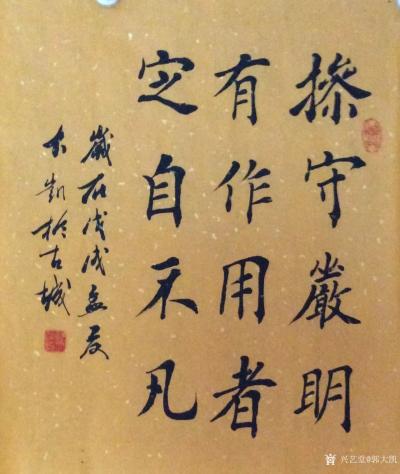 操守嚴明
有作用者
定自不凡
歲在戊戌孟夏
大凱於古城
兴艺堂@郭大凯